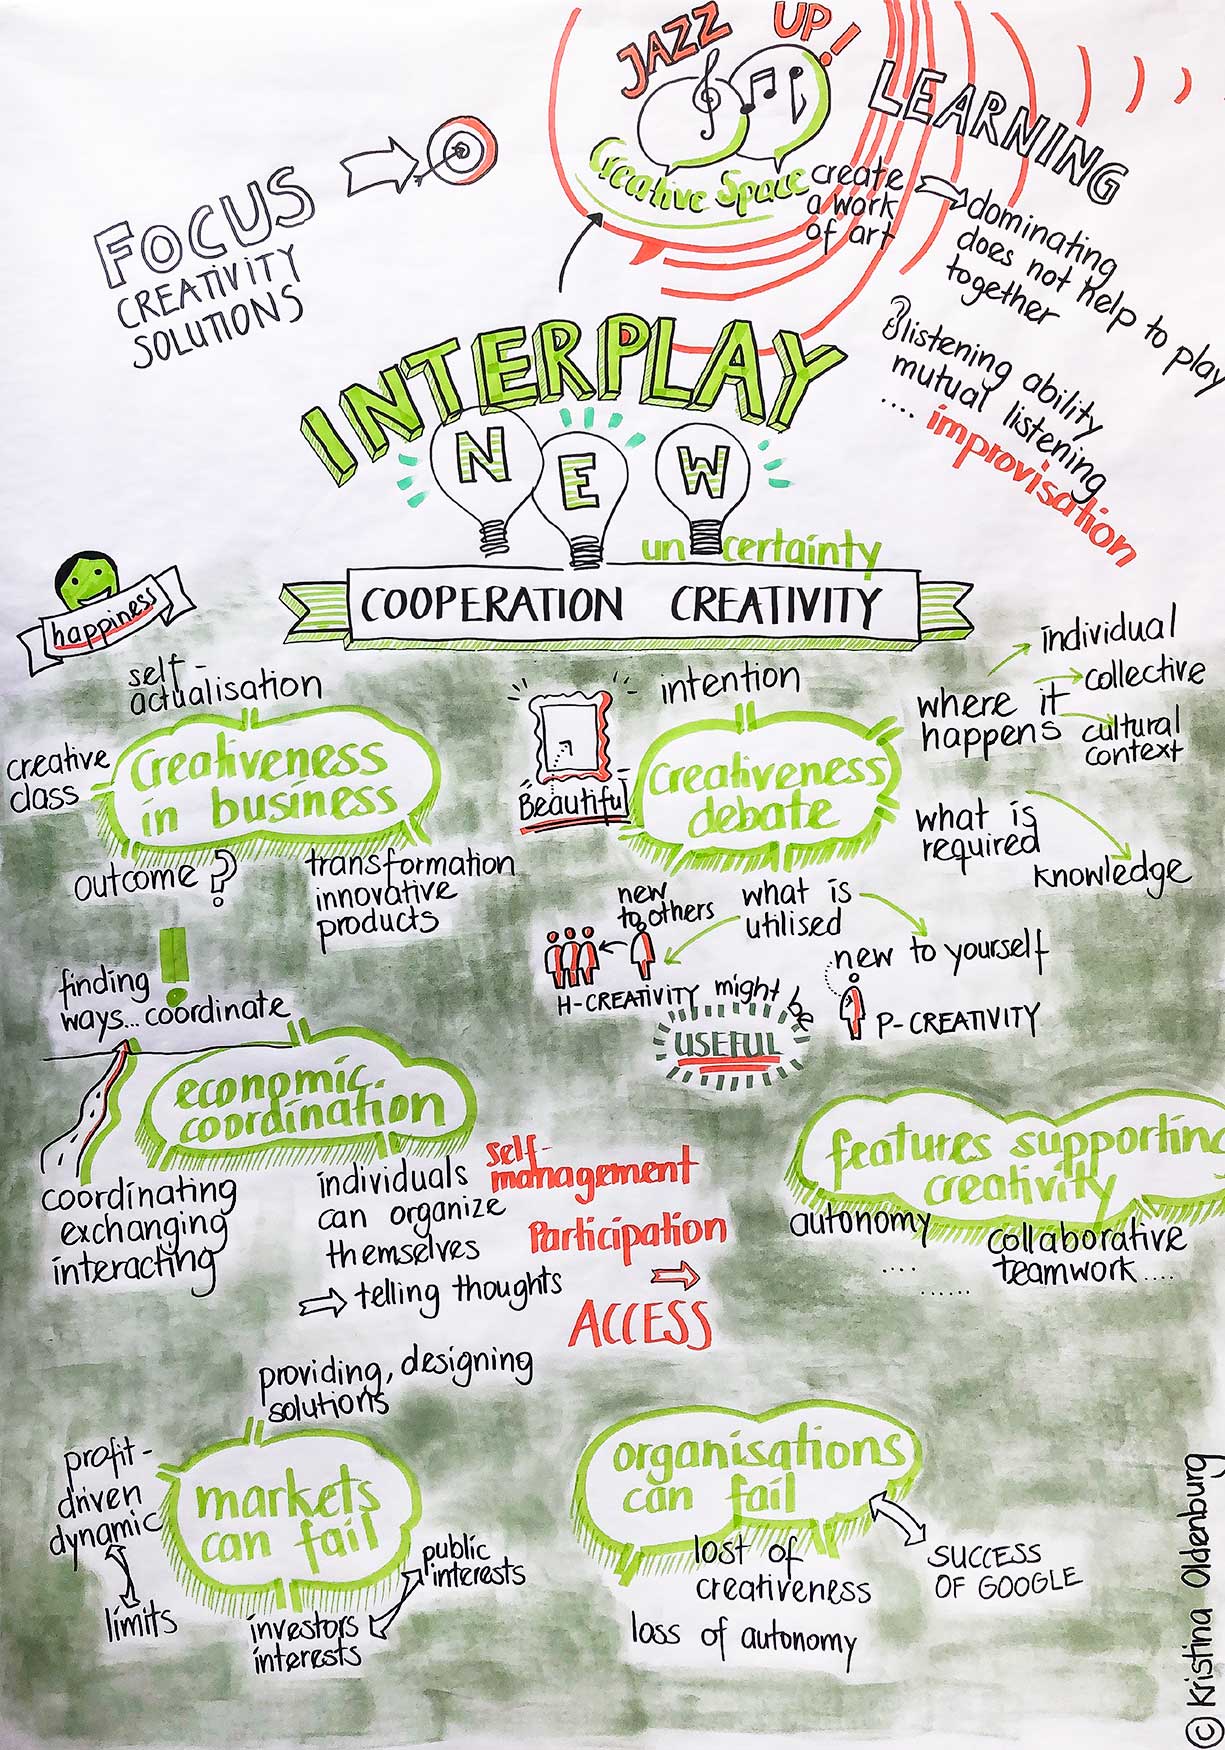 JAZZ UP!
LEARNING
Creative Space
create
a work
of art
dominating
does not help to play
together
listening ability
mutual listening
.... improvisation
FOCUS
CREATIVITY
SOLUTIONS
INTERPLAY
NEW
uncertainty
COOPERATION CREATIVITY
happiness
self-
actualisation
creative
class
Creativeness
in business
outcome?
transformation
innovative
products
!
finding
ways... coordinate
Beautiful
intention
creativeness
debate
where it
happens
individual
collective
cultural
context
what is
required
knowledge
what is
utilised
new
to others
H-CREATIVITY
new to yourself
P-CREATIVITY
might
USEFUL
economic
coordination
coordinating
exchanging
interacting
individuals
can organize
themselves
telling thoughts
self-
management
Participation
ACCESS
features supporting
creativity
autonomy
....
......
collaborative
teamwork....
providing, designing
solutions
profit-
driven
dynamic
limits
markets
can fail
investors
interests
public
interests
organisations
can fail
lost of
creativeness
loss of autonomy
SUCCESS
OF GOOGLE
© Kristina Oldenburg